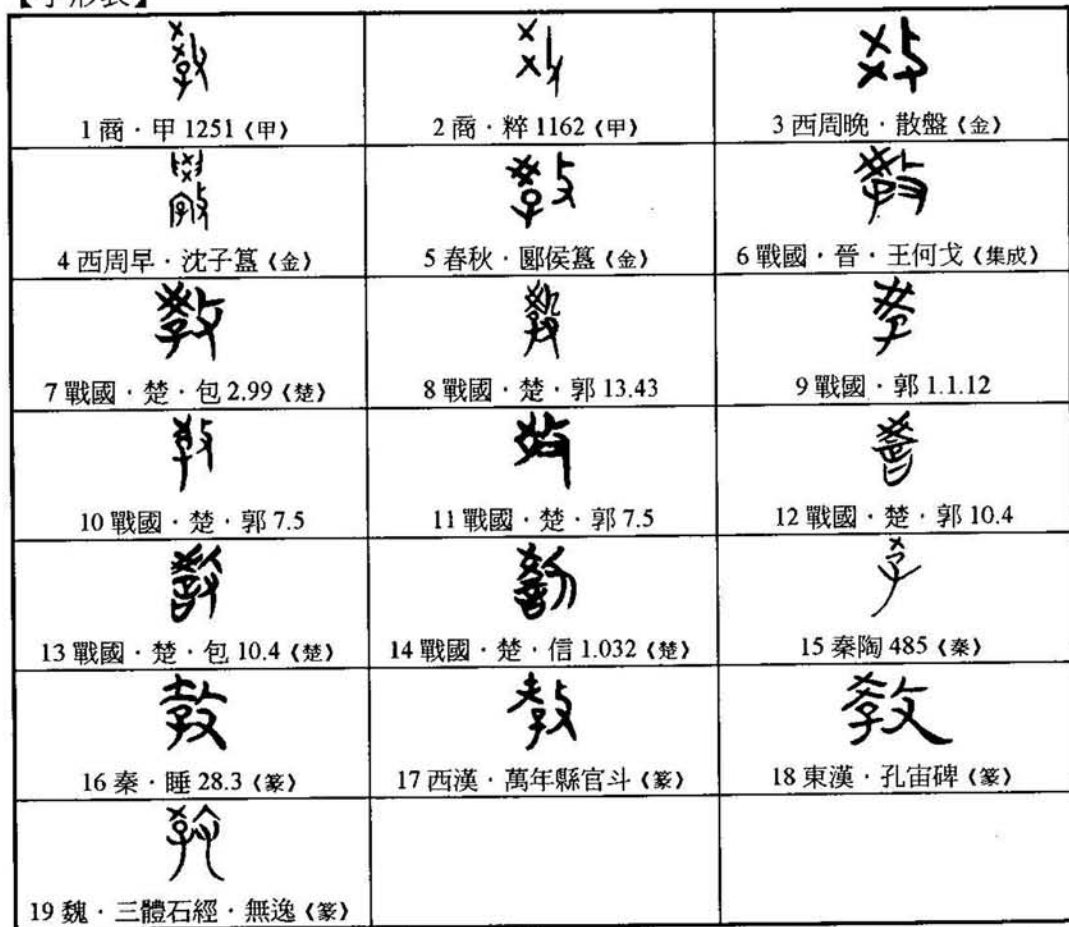 【字形表】
1 商‧甲 1251《甲》
2 商‧粹 1162《甲》
3 西周晚‧散盤《金》
4 西周早‧沈子簋《金》
5 春秋‧郾侯簋《金》
6 戰國‧晉‧王何戈《集成》
7 戰國‧楚‧包 2.99《楚》
8 戰國‧楚‧郭 13.43
9 戰國‧郭 1.1.12
10 戰國‧楚‧郭 7.5
11 戰國‧楚‧郭 7.5
12 戰國‧楚‧郭 10.4
13 戰國‧楚‧包 10.4《楚》
14 戰國‧楚‧信 1.032《楚》
15 秦陶 485《秦》
16 秦‧睡 28.3《篆》
17 西漢‧萬年縣官斗《篆》
18 東漢‧孔宙碑《篆》
19 魏‧三體石經‧無逸《篆》